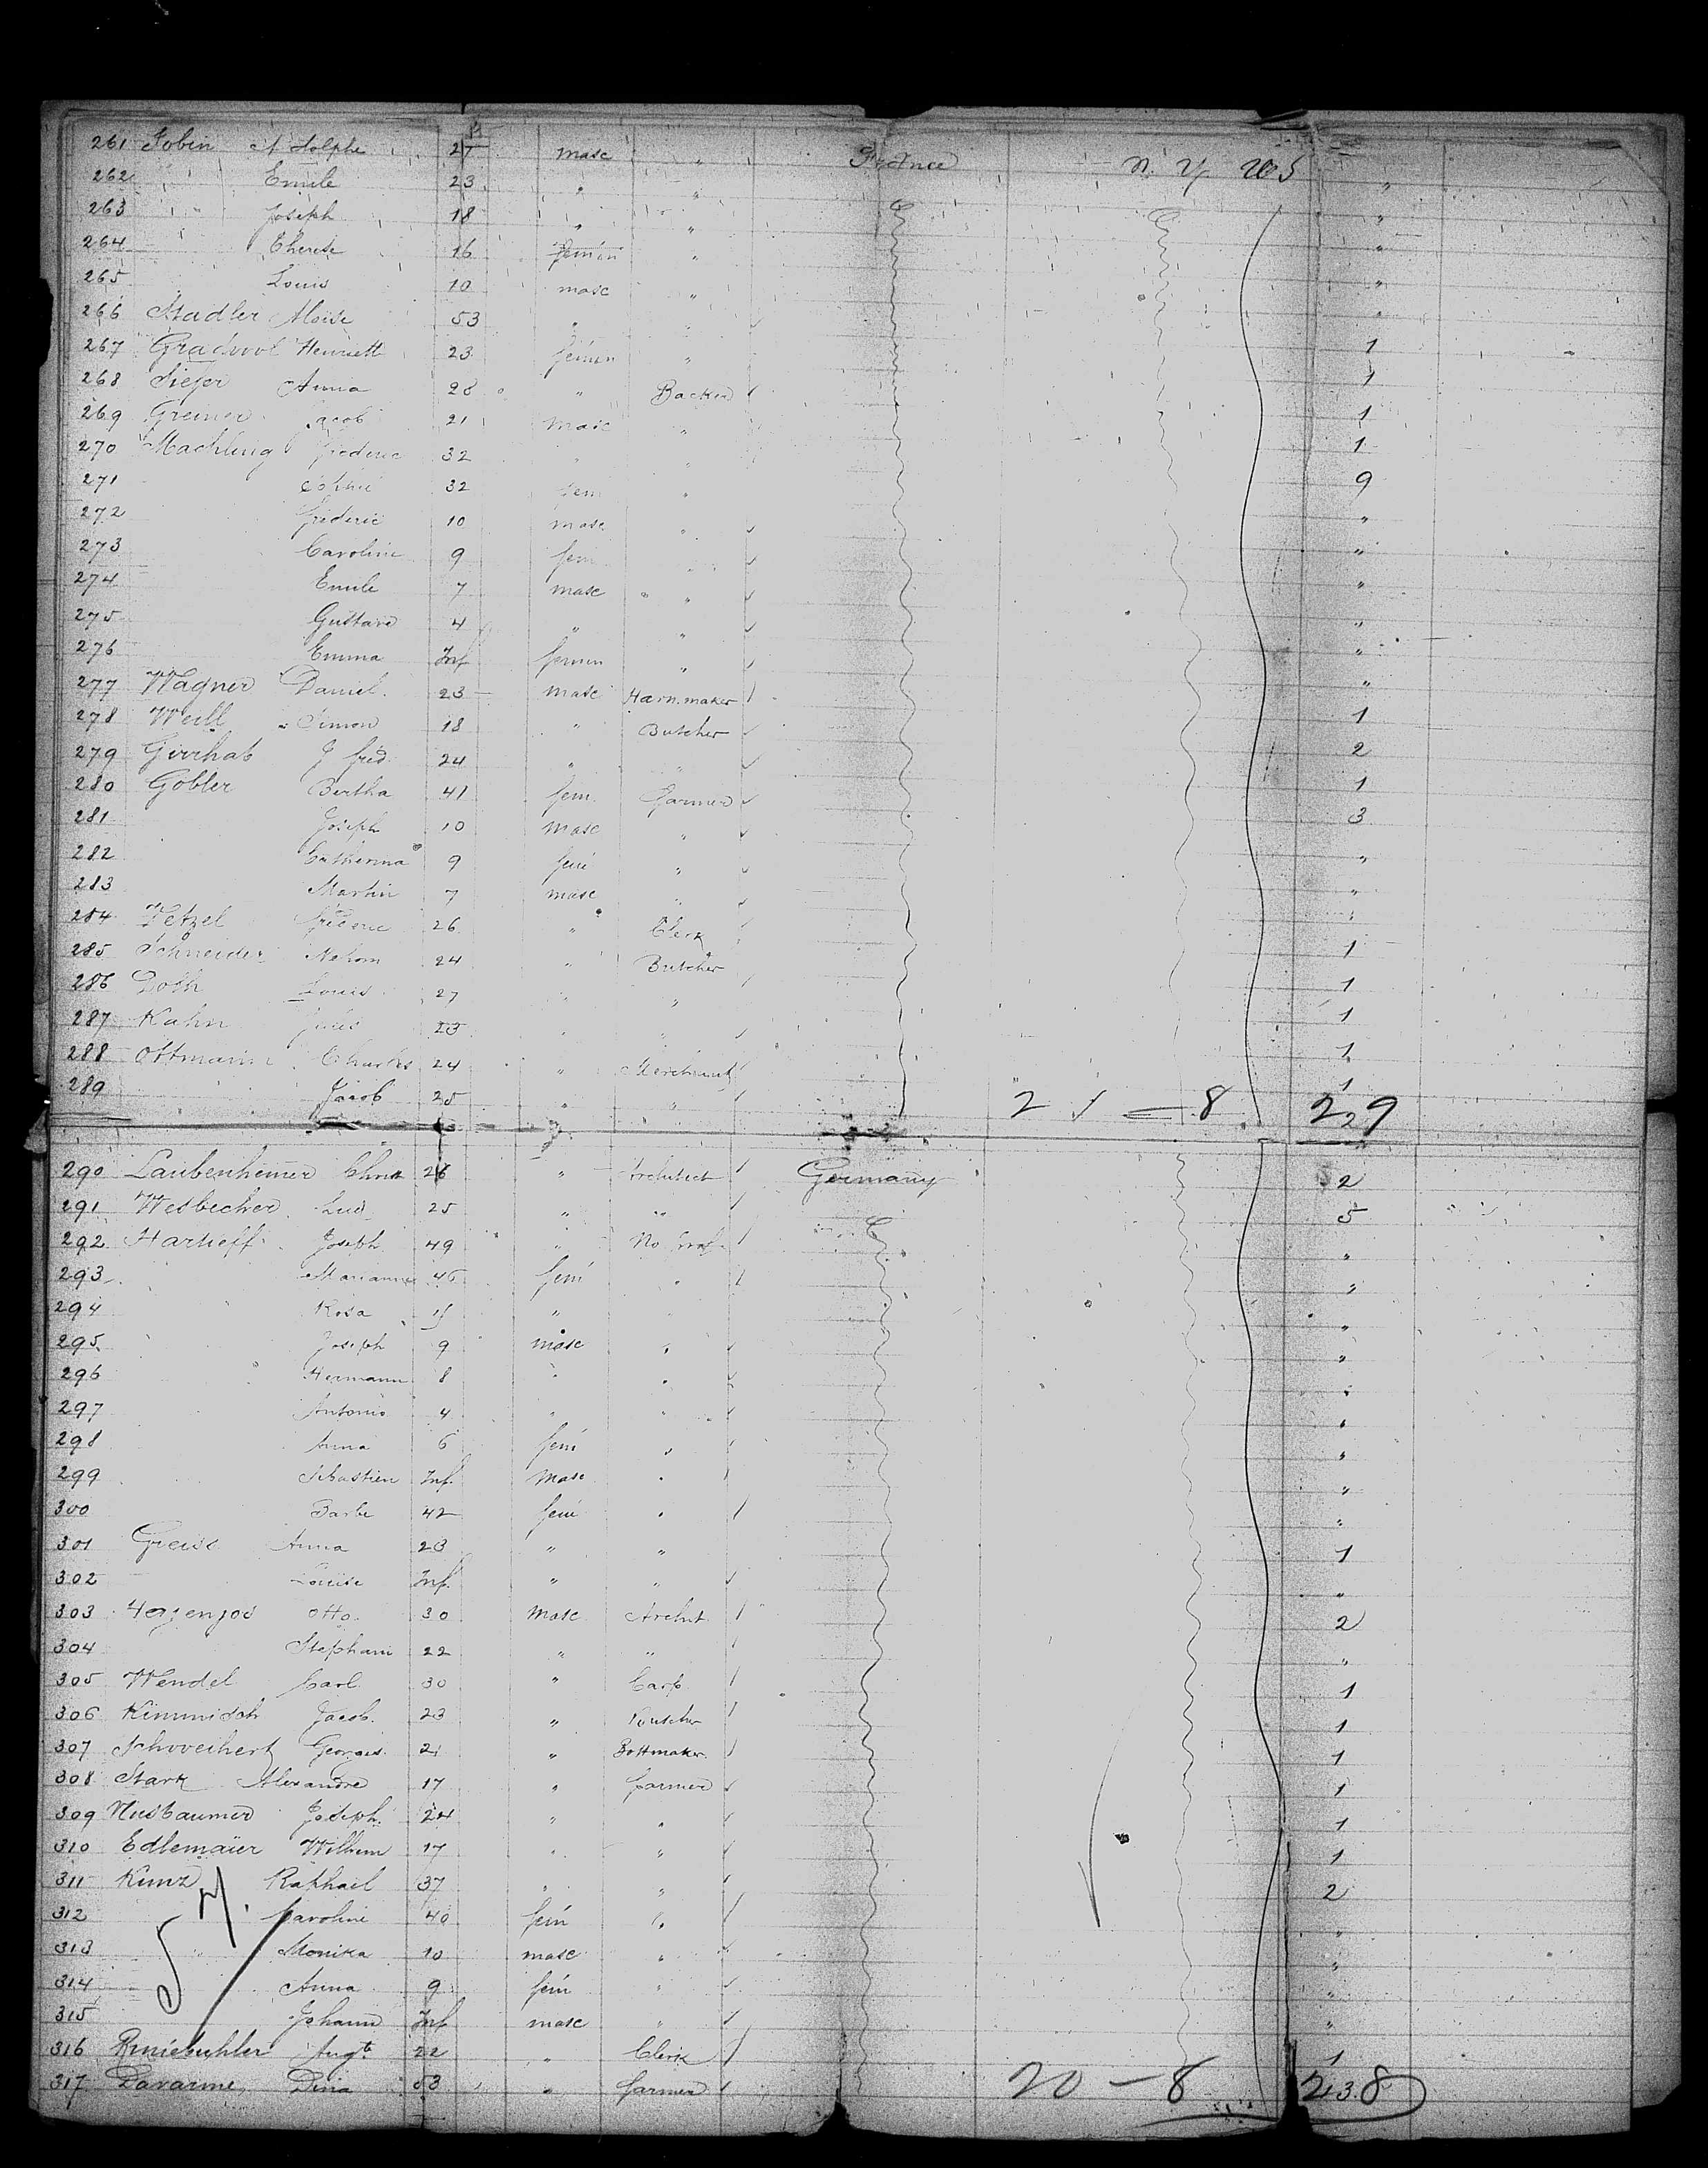 261 Jobin Adolphe 27 masc " France N. Y 205
262 " Emile 23 " " "
263 " Joseph 18 " " "
264 Therese 16 femin " "
265 Louis 10 masc " "
266 Stadler Moise 53 " " "
267 Gradwol Henriett 23 femin " 1
268 Siefer Anna 28 " Backer 1
269 Greiner Jacob 21 masc " 1
270 Machling frederic 32 " " 1
271 Sophie 32 fem " 9
272 frederic 10 masc " "
273 Caroline 9 fem " "
274 Emile 7 masc " "
275 Gustave 4 " " "
276 Emma Inf femin " "
277 Wagner Daniel 23 masc Harn.maker "
278 Weill Simon 18 " Butcher 1
279 J fred. 24 " " 2
280 Gobler Bertha 41 fem. farmer 1
281 Joseph 10 masc " 3
282 Catherina 9 fem " "
283 Martin 7 masc " "
284 frederic 26 " Clerk "
285 Schneider Nahom 24 " Butcher 1
286 Louis 27 " " 1
287 Kahn Jules 23 " " 1
288 Ottmann Charles 24 " Merchant 1
289 Jacob 25 " " 1
2 1 = 8 229
290 Laubenheimer Christ 26 " Architect Germany 2
291 Wesbecher Lud 25 " " 5
292 Hartieff Joseph 49 " No prof. "
293 Marianne 46 fem " "
294 Rosa 11 " "
295 Joseph 9 masc " "
296 Hermann 8 " " "
297 Antonio 4 " " "
298 Anna 6 fem " "
299 Sebastien Inf. masc " "
300 Barbe 42 fem " "
301 Greise Anna 23 " " 1
302 Louise Inf. " " "
303 Otto. 30 masc Archit 2
304 Stephani 22 " " "
305 Wendel Carl 30 " Carp 1
306 Kimmisch Jacob. 23 " Butcher 1
307 Schoveihert Georges. 21 " Bottmaker. 1
308 Stark Alexandre 17 " farmer 1
309 Nusbaumer Joseph. 24 " " 1
310 Edlemaïer Wilhem 17 " " 1
311 Kunz Raphael 37 " " 2
312 Caroline 40 fem " "
313 Monika 10 masc " "
314 Anna 9 fem " "
315 Johann Inf masc " "
316 Augt. 22 " Clerk 1
317 Davarine Dina 53 " farmer
20 — 8 238